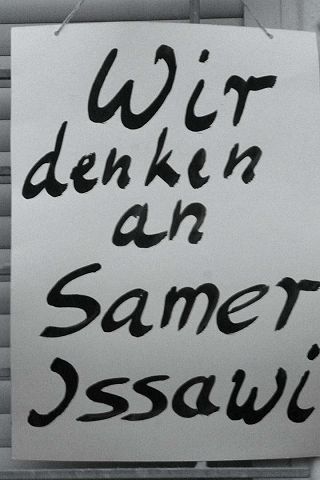 Wir
denken
an
Samer
Issawi